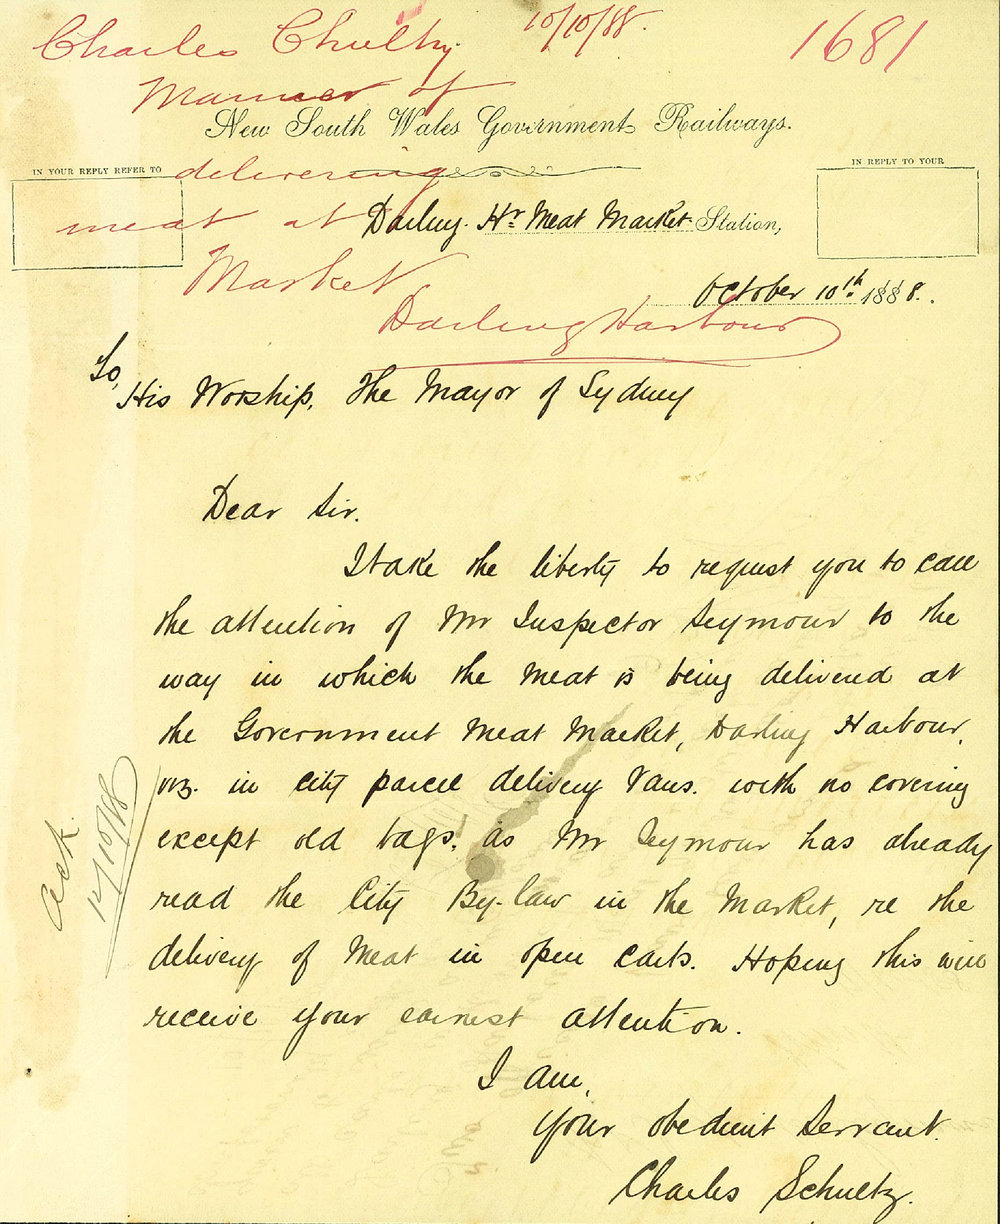 10/10/88.
1681
Charles Chultz.
Manner of
New South Wales Government Railways.
IN YOUR REPLY REFER TO
IN REPLY TO YOUR
delivering
meat at
Darling. Hr. Meat Market Station,
Market
October 10th. 1888.
Darling Harbour
To,
His Worship, The Mayor of Sydney
Dear Sir.
I take the liberty to request you to call
the attention of Mr Inspector Seymour to the
way in which the meat is being delivered at
the Government Meat Market, Darling Harbour,
viz. in city parcel delivery Vans. with no covering
except old bags. as Mr Seymour has already
read the City By-law in the Market, re the
delivery of Meat in open carts. Hoping this will
receive your earnest attention.
ack.
12/10/88
I am,
Your obedient Servant.
Charles Schultz.